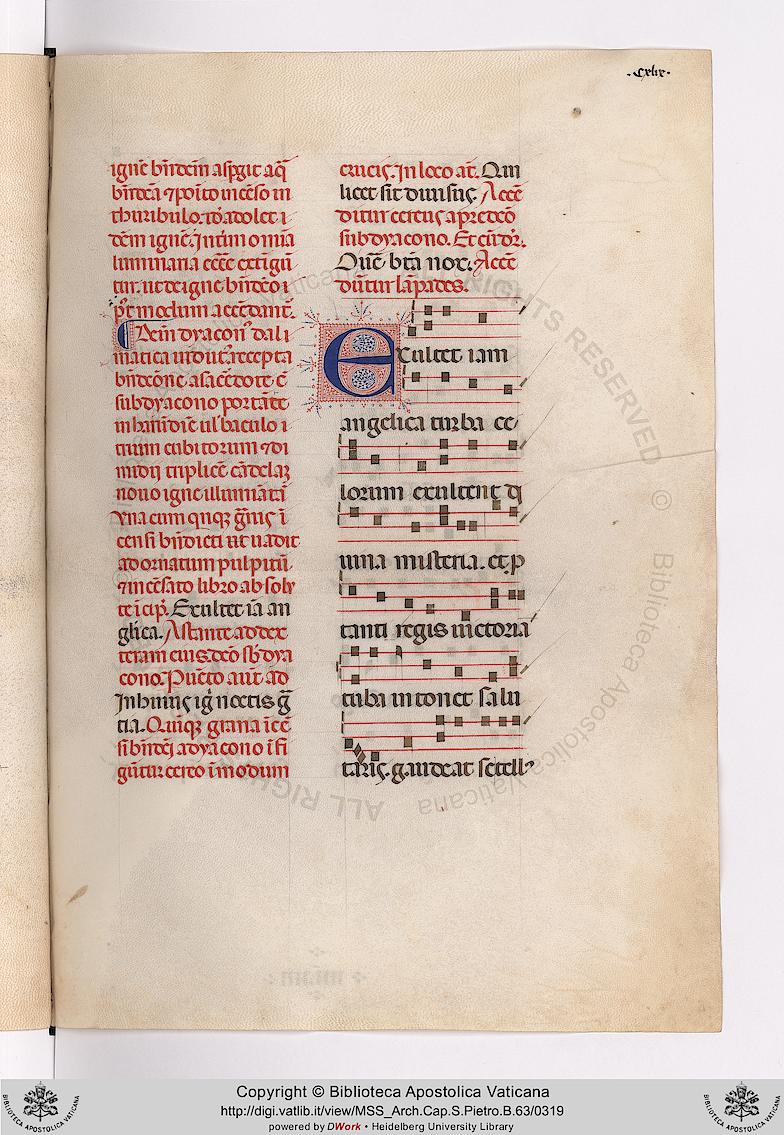 .cxlix.
ignē bn̄dcēm aspgit aq̄
bn̄dcā ⁊ poīto incēso in
thuribulo. īō adolet i
dēm ignē. Intim̄ omīa
luminaria ecc̄e extigū
tur. ut de igne bn̄dcō i
modum accēdant.
Dein dyacon dali
matica indutꝰ recepta
bn̄dcōne a sacdote c̄
subdyacono portāte
in harūdīe ul baculo i
trium cubitorum ⁊ di
midij triplicē cādelaꝝ
nouo igne illumīatā
Vna cum qnqꝫ ḡnis ī
censi bn̄dicti ut uadit
ad ornatum pulpitū.
⁊ incēsato libro absolu
te īcip̄. Exultet iā an
glica. Astante ad dex
teram eius dcō sb̄dya
cono. Puēto aut̄ ad
In huiꝰ ig noctis ḡ
tia. Quīqꝫ grana īcē
si bn̄dcī a dyacono ī fi
gūtur cereo ī modum
crucis. In loco āt. Qui
licet sit diuisus. Accē
ditur cereus a predcō
subdyacono. Et cū dr̄.
Quē br̄a nox. Accē
dūtur lāpades.
Exultet iam
angelica turba ce
lorum exultent d
iuina misteria. et p
tanti regis uictoria
tuba intonet salu
taris. gaudeat se tell
Copyright © Biblioteca Apostolica Vaticana
http://digi.vatlib.it/view/MSS_Arch.Cap.S.Pietro.B.63/0319
powered by DWork • Heidelberg University Library
BIBLIOTECA APOSTOLICA VATICANA
BIBLIOTECA APOSTOLICA VATICANA
ALL RIGHTS RESERVED © Biblioteca Apostolica Vaticana